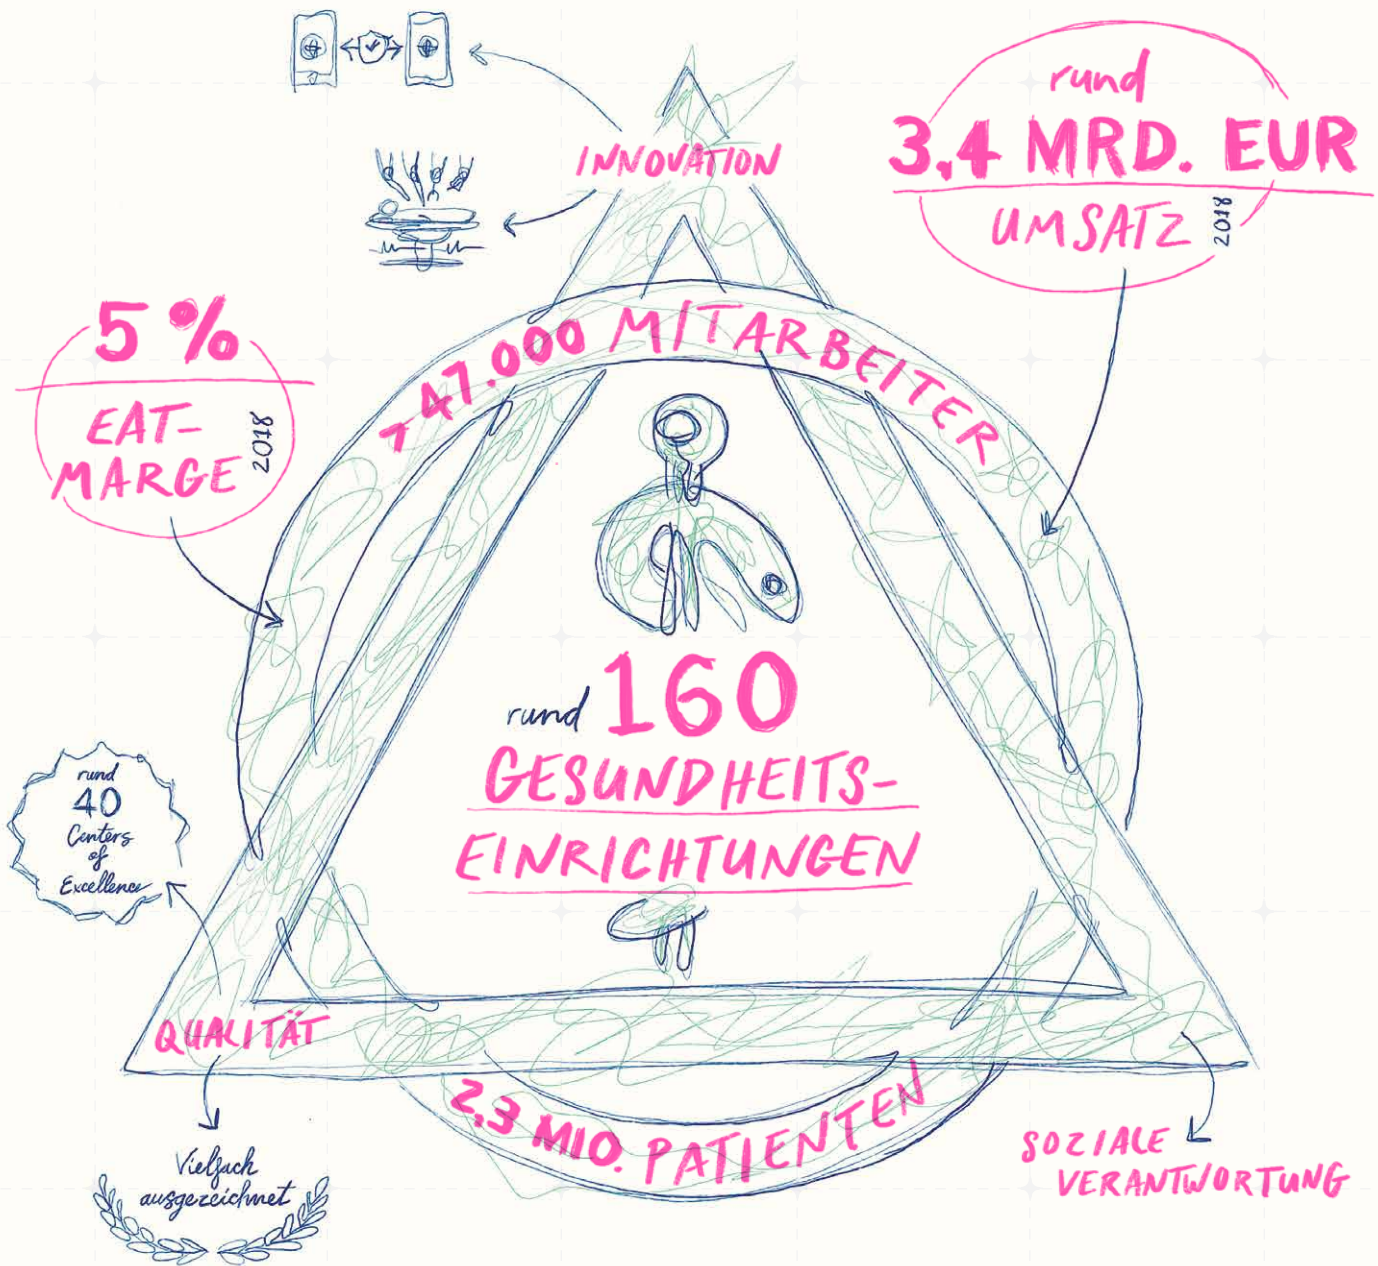 INNOVATION
rund
3,4 MRD. EUR
UMSATZ
2018
5 %
EAT-
MARGE
2018
> 47.000 MITARBEITER
rund 160
GESUNDHEITS-
EINRICHTUNGEN
rund
40
Centers
of
Excellence
QUALITÄT
2,3 MIO. PATIENTEN
Vielfach
ausgezeichnet
SOZIALE
VERANTWORTUNG